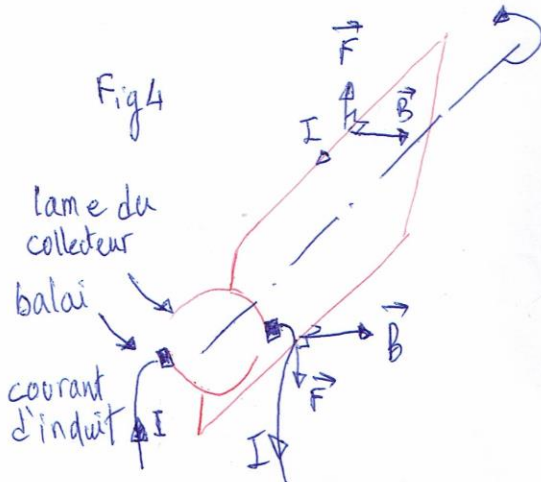 Fig4
F
I
B
lame du
collecteur
balai
B
courant
d'induit
I
F
I